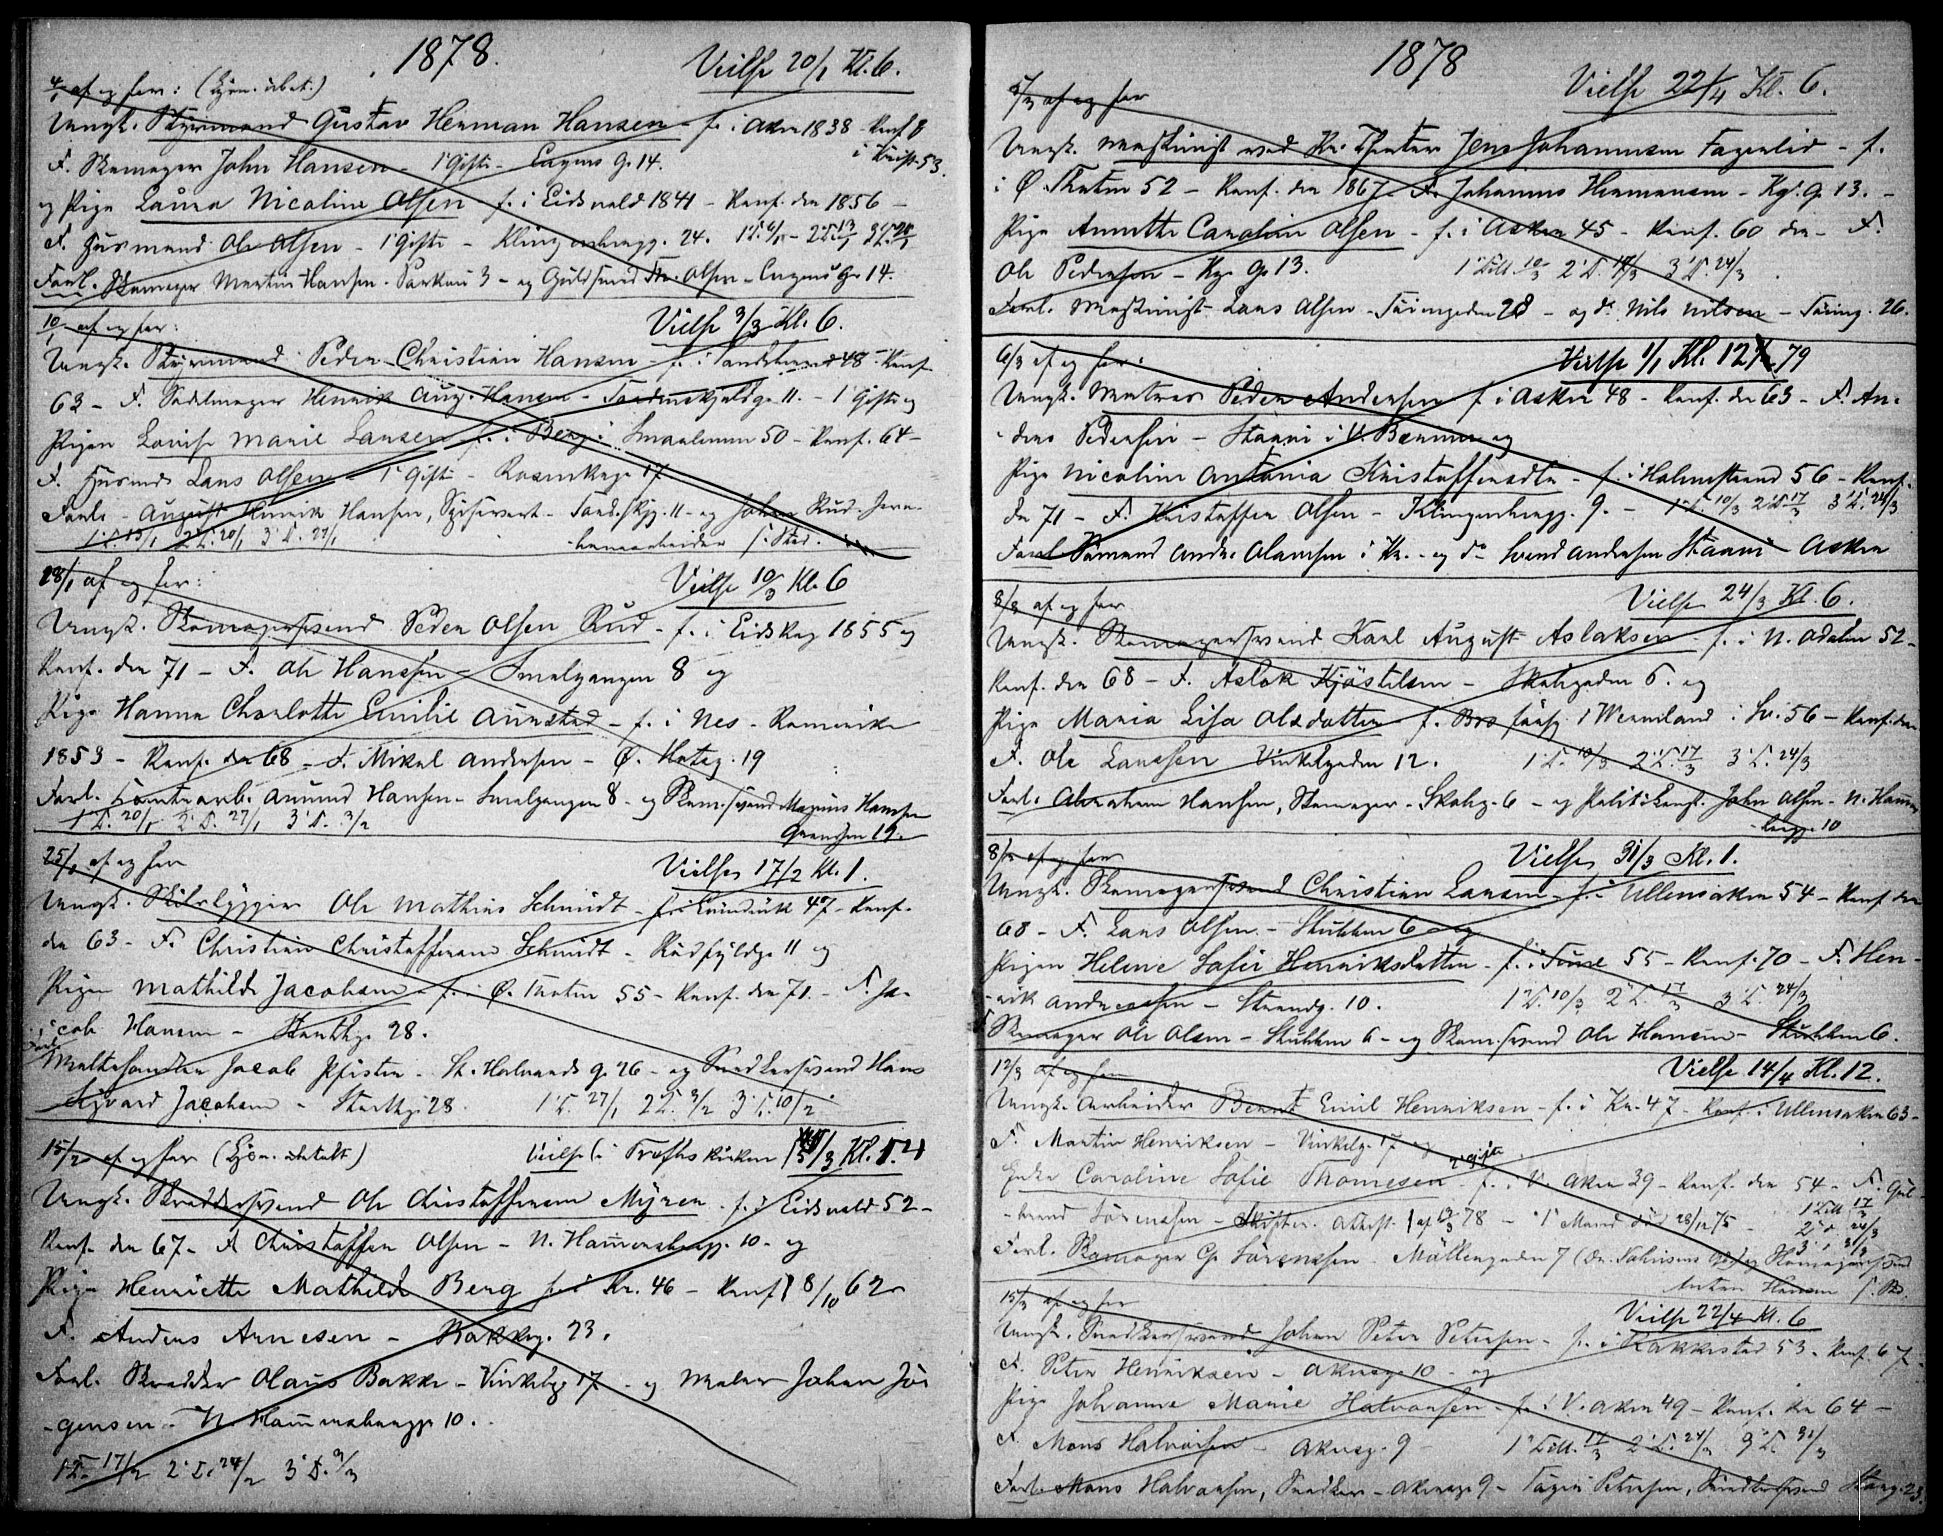 1878.
Vielse 20/1 Kl. 6.
4/1 af og for: (hjem. ubet.)
Ungk. Styrmand Gustav Herman Hansen f. i Aker 1838 - Konf. 
i Krist. 53.
F. Skomager John Hansen - 1' Gifte - Enzens G. 14.
og Pige Laura Nicoline Olsen f. i Eidsvold 1841 - Konf. der 1856 -
F. Husmand Ole Olsen - 1' Gifte - Klingenbergg. 24. 1'T. 6/1 - 2'T. 13/1 3'T. 20/1
Forl. Skomager Martin Hansen - Parkvei 3 - og Guldsmed Olsen - Enzens G. 14.
10/1 af og for:
Vielse 3/3 Kl. 6.
Ungk. Styrmand Peder Christian Hansen - f. i 48 - Konf.
63 - F. Sadelmager Henrik Aug. Hansen - Tordenskjoldsg. 11. - 1' Gifte og
Pigen Lovise Marie Larsen f. i Berg i Smaalenene 50 - Konf. 64 -
F. Husmd. Lars Olsen - 1' Gifte - Rosenkrg. 17
Forl. - August Henrik Hansen, Spisevert - Tordskjg. 11 - og Johan Rud. Jern-
1'T. 13/1 2'T. 20/1 3'T. 27/1 banearbeider
18/1 af og for:
Vielse 10/3 Kl. 6
Ungk. Skomagersvend Peder Olsen Rud - f. i Eidskog 1855 og
Konf. der 71 - F. Ole Hansen - Smalgangen 8 og
Pige Hanna Charlotte Emilie Aumstad - f. i Nes - Romerike
1853 - Konf. der 68 - F. Mikal Andersen - Ø. 19
Forl. Tomtearb. Amund Hansen - Smalgangen 8 - og Skom.svend Magnus Hansen
1'T. 20/1 2'T. 27/1 3'T. 3/2 Grændsen 19.
25/1 af og for
Vielse 17/2 Kl. 1.
Ungk. Ole Mathias Schmidt - f. i 47 - Konf.
der 63 - F. Christian Christoffersen Schmidt - Rødfyldg. 11 og
Pigen Mathilde Jacobsen - f. i Ø. Thoten 55 - Konf. der 71 - F. Ja-
cob Hansen - Storthg. 28.
Forl. Maltesvend Jacob Pfister - St. Halvards g. 26 - og Snedkersvend Hans
Sigvard Jacobsen - Storthg. 28. 1'T. 27/1 2'T. 3/2 3'T. 10/2
15/2 af og for (hjem. ubetalt)
Vielse (i Trefs kirken) /3 Kl.
Ungk. Skræddersvend Ole Christoffersen Myren - f. i Eidsvold 52 -
Konf. der 67 - F. Christoffer Olsen - N. Hammersborgg. 10 - og
Pige Henriette Mathilde Berg f. i Kr. 46 - Konf. 8/10 62
F. Anders Arnesen - Bakkeg. 23.
Forl. Skrædder Olaus Bakke - Vinkelg. 17 - og Maler Johan Jør
gensen - N. Hammersborgg. 10.
1'T. 17/2 2'T. 24/2 3'T. 3/3
1878
Vielse 22/4 Kl. 6.
5/3 af og for
Ungk. Maskinist ved Kr. Theater Jens Johannesen Fagerlid - f.
i Ø. Thoten 52 - Konf. der 1867 - F. Johannes Hermansen - Kg. g. 13. -
Pige Annette Caroline Olsen - f. i Asker 45 - Konf. 60 der - F.
Ole Pedersen - Kg. g. 13. 1'Till. 10/3 2'T. 17/3 3'T. 24/3
Forl. Maskinist Lars Olsen - Tøiengaden 28 - og do. Nils Nilsen - Tøieng. 26.
6/3 af og for.
Vielse 1/1 Kl. 12 79
Ungk. Matros Peder Andersen f. i Asker 48 - Konf. der 63 - F. An-
ders Pedersen - i V. Bærum og
Pige Nicoline Antonia Kristoffersdtr. - f. i Holmestrand 56 - Konf.
der 71 - F. Kristoffer Olsen - Klingenbergg. 9. - 1'T. 10/3 2'T. 17/3 3'T. 24/3
Forl. Sømand Andr. Olausen i Kr. - og do Svend Andersen Asker
8/3 af og for
Vielse 24/3 Kl. 6.
Ungk. Skomagersvend Karl August Aslaksen - f. i N. Odalen 52 -
Konf. der 68 - F. Aslak Kjøstelsen - Skolegaden 6. og
Pige Maria Lisa Olsdotter - f. Bro i Wermland i Sv. 56 - Konf. der
F. Ole Larssen Vinkelgaden 12. 1'T. 10/3 2'T. 17/3 3'T. 24/3
Forl. Abraham Hansen, Skomager - Skoleg. 6 - og Politikonst. John Olsen - N. Hamm
bergg. 10
8/3 af og for
Vielse 31/3 Kl. 1.
Ungk. Skomagersvend Christian Larsen - f. i Ullensaker 54 - Konf. der
68 - F. Lars Olsen - 6 - og
Pigen Helene Sofie Henriksdatter - f. i Tune 55 - Konf. 70 - F. Hen-
rik Andreassen - Strandg. 10. 1'T. 10/3 2'T. 17/3 3'T. 24/3
F. Skomager Ole Olsen - 6 - og Skom.svend Ole Hansen - 6.
12/3 af og for
Vielse 14/4 Kl. 12.
Ungk. Arbeider Bernt Emil Henriksen - f. i Kr. 47 - Konf. i Ullensaker 63 -
F. Martin Henriksen - Vinkelg. 17 og
Enke Caroline Sofie Thomesen - f. i V. Aker 39 - Konf. der 54 - F. Gul-
brand Sørensen - Skifte attest 78 - 1' Mand død 28/12 75 - 1 Till. 17/3
2' 24/3
3' 31/3
Forl. Skomager G. Sørensen - Møllergaden 7 og Skomagersvend
Anton Hansen
15/3 af og for
Vielse 22/4 Kl. 6
Ungk. Snedkersvend Johan Peter Petersen - f. i Rakkestad 53 - Konf. 67.
F. Peter Henriksen - Akersg. 10 - og
Pige Johanne Marie Halvorsen - f. i V. Aker 49 - Konf. der 64 -
F. Mons Halvorsen - Akersg. 9 - 1'Till. 17/3 2'T. 24/3 3'T. 31/3
Forl. Mons Halvorsen, Snedker - Akersg. 9 - Petersen, Snedkersvend Storg. 23.